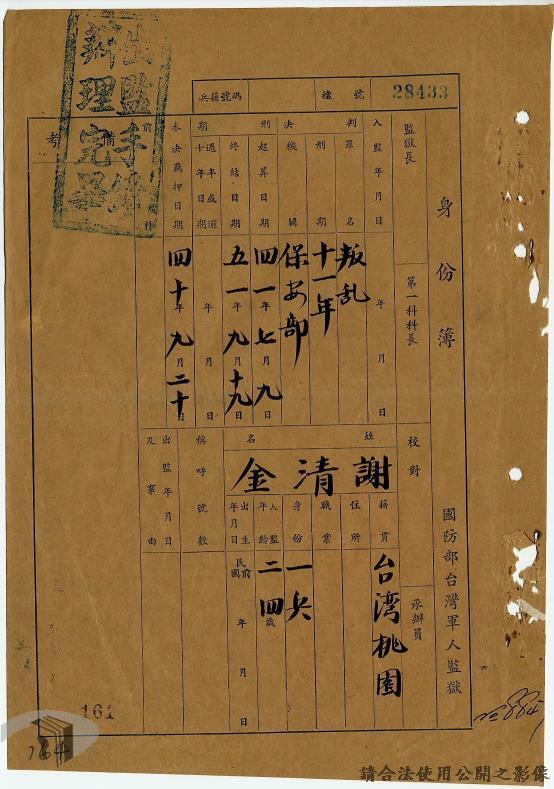 出監手續
辦理完畢
兵籍號碼
檔號
28433
身份簿
國防部台灣軍人監獄
監獄長
第一科科長
校對
承辦員
入監年月日
年 月 日
判決
罪名
叛乱
刑期
十一年
機關
保安部
刑期
起算日期
四一年七月九日
終結日期
五一年九月十九日
過半或逾十年日期
年 月 日
本決羈押日期
四十年九月二十日
前
備考
姓名
謝清金
籍貫
台湾桃園
住所
職業
身份
一兵
入監年齡
二四歲
出生年月日
民國前 年 月 日
稱呼號數
出監年月日及事由
161
164
請合法使用公開之影像